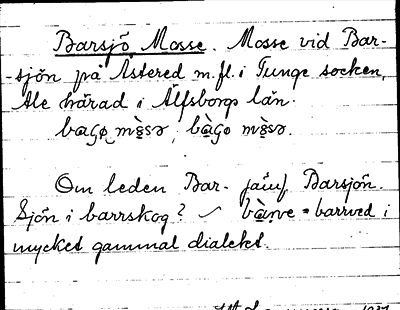 Barsjö Mosse. Mosse vid Bar-
-sjön på Östered m.fl. i Tunge socken,
Ale härad i Älfsborgs län.
Om leden Bar- jämf Barsjön.
Sjön i barrskog? = barrved i
mycket gammal dialekt.